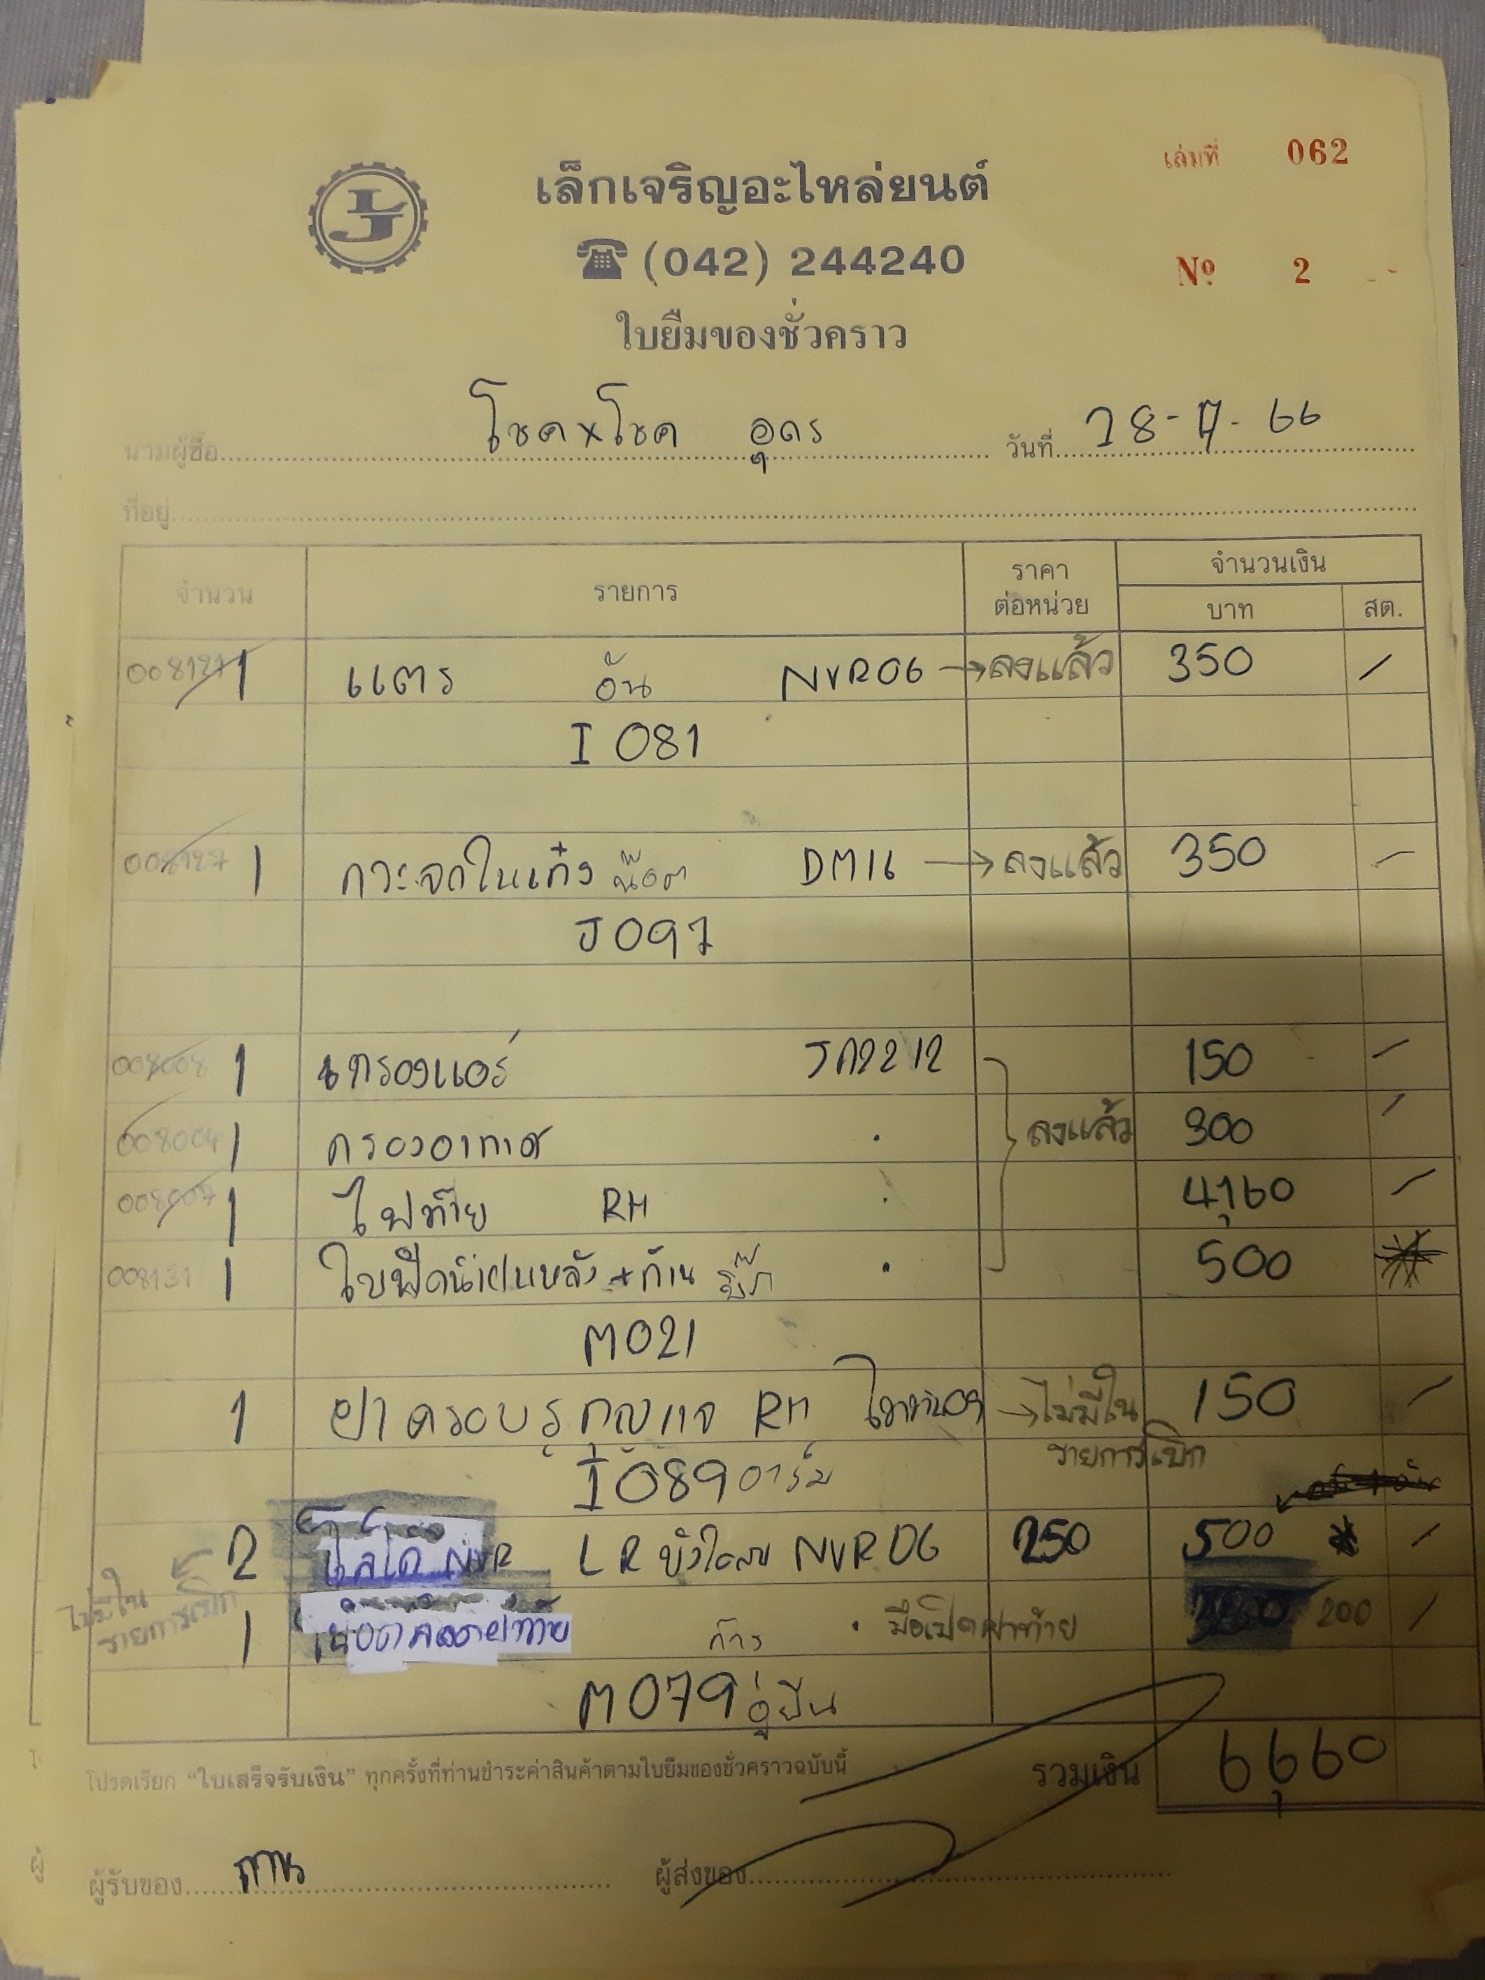 LJ
เล่มที่ 062
เล็กเจริญอะไหล่ยนต์
☎ (042) 244240
Nº 2
ใบยืมของชั่วคราว
นามผู้ซื้อ โชค×โชค อุดร วันที่ 28-7-66
ที่อยู่
จำนวน รายการ ราคาต่อหน่วย จำนวนเงิน
บาท สต.
1 แตร อ้น NVR06 → ลงแล้ว 350 /
I 081
008127 1 กระจกในเก๋ง DM16 → ลงแล้ว 350 -
J097
008008 1 กรองแอร์ JA2212 150 /
008004 1 กรองอากาศ . ลงแล้ว 300 /
008007 1 ไฟท้าย RH . 4,160 /
008131 1 ใบปัดน้ำฝนหลัง+ก้าน . 500
M021
1 ฝาครอบรูกุญแจ RH → ไม่มีใน 150 /
I 089 อาร์ม รายการเบิก
2 ไลโค้ NVR LR บังโคลน NVR06 250 500 /
ไม่มีใน
รายการเบิก
1 ก้าง . มือเปิดฝาท้าย 200 /
M079 อู่ยืน
โปรดเรียก "ใบเสร็จรับเงิน" ทุกครั้งที่ท่านชำระค่าสินค้าตามใบยืมของชั่วคราวฉบับนี้ รวมเงิน 6,660
ผู้รับของ ผู้ส่งของ